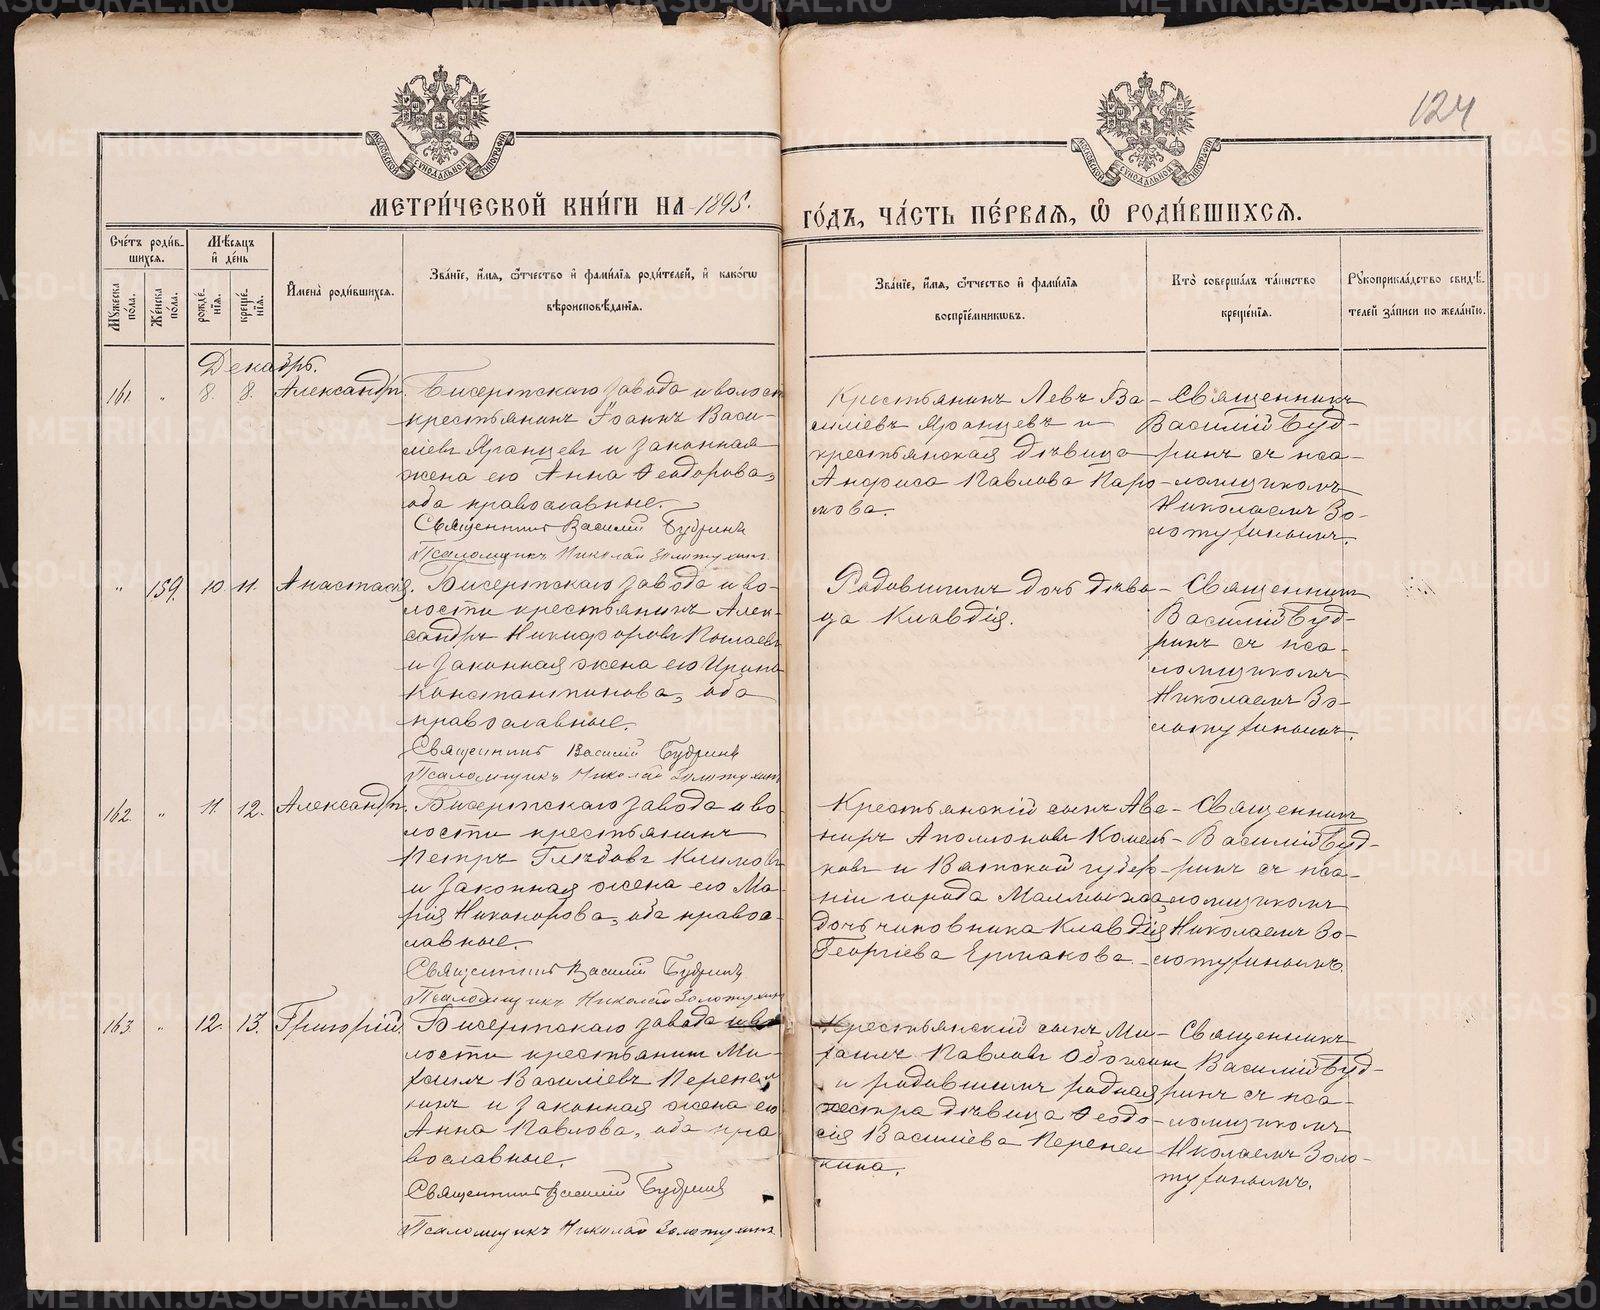 124
МОСКОВСКОЙ СѴНОДАЛЬНОЙ ТИПОГРАФІИ
МОСКОВСКОЙ СѴНОДАЛЬНОЙ ТИПОГРАФІИ
МЕТРИ́ЧЕСКОЙ КНИ́ГИ НА 1895.
ГО́ДЪ, ЧА́СТЬ ПЕ́РВАѦ, Ѡ РОДИ́ВШИХСѦ.
Сче́тъ роди́в-
шихсѧ.
Мꙋ́жеска по́ла.
Же́нска по́ла.
Мѣ́сѧцъ
и҆ де́нь
рожде́-
нїѧ.
креще́-
нїѧ.
И҆мена̀ роди́вшихсѧ.
Зва́нїе, и҆́мѧ, ѻ҆́тчество и҆ фами́лїѧ роди́телей, и҆ како́гѡ
вѣроисповѣ́данїѧ.
Зва́нїе, и҆́мѧ, ѻ҆́тчество и҆ фами́лїѧ
воспрїе́мникѡвъ.
Кто̀ соверша́лъ та́инство
креще́нїѧ.
Рꙋкоприкла́дство свидѣ́-
телей за́писи по жела́нїю.
Декабрь.
161. " 8. 8. Александръ.
Бисертскаго завода и волости
крестьянинъ Іоаннъ Васи-
ліевъ Яранцевъ и законная
жена его Анна Ѳеодорова,
оба православные.
Священникъ Василій Будринъ
Псаломщикъ Николай Золотухинъ
Крестьянинъ Левъ Ва-
силіевъ Яранцевъ и
крестьянская дѣвица
Анфиса Павлова Паро-
мова.
Священникъ
Василій Буд-
ринъ съ пса-
ломщикомъ
Николаемъ Зо-
лотухинымъ.
" 159. 10. 11. Анастасія.
Бисертскаго завода и во-
лости крестьянинъ Алек-
сандръ Никифоровъ
и законная жена его Ирина
Константинова, оба
православные.
Священникъ Василій Будринъ
Псаломщикъ Николай Золотухинъ
Родившимъ дочь дѣви-
ца Клавдія.
Священникъ
Василій Буд-
ринъ съ пса-
ломщикомъ
Николаемъ Зо-
лотухинымъ.
162. " 11. 12. Александръ.
Бисертскаго завода и во-
лости крестьянинъ
Петръ Глѣбовъ Климовъ
и законная жена его Ма-
рія Никонорова, оба правос-
лавные.
Священникъ Василій Будринъ
Псаломщикъ Николай Золотухинъ
Крестьянскій сынъ Аве-
ниръ Аполлоновъ
и Вятской губер-
ніи города Малмыжа
дочь чиновника Клавдія
Георгіева Ермакова.
Священникъ
Василій Буд-
ринъ съ пса-
ломщикомъ
Николаемъ Зо-
лотухинымъ.
163. " 12. 13. Григорій.
Бисертскаго завода и во-
лости крестьянинъ Ми-
хаилъ Василіевъ Перепел-
кинъ и законная жена его
Анна Павлова, оба пра-
вославные.
Священникъ Василій Будринъ
Псаломщикъ Николай Золотухинъ
Крестьянскій сынъ Ми-
хаилъ Павловъ
и родившимъ родная
сестра дѣвица Ѳеодо-
сія Василіева Перепел-
кина.
Священникъ
Василій Буд-
ринъ съ пса-
ломщикомъ
Николаемъ Золо-
тухинымъ.
METRIKI.GASO-URAL.RU